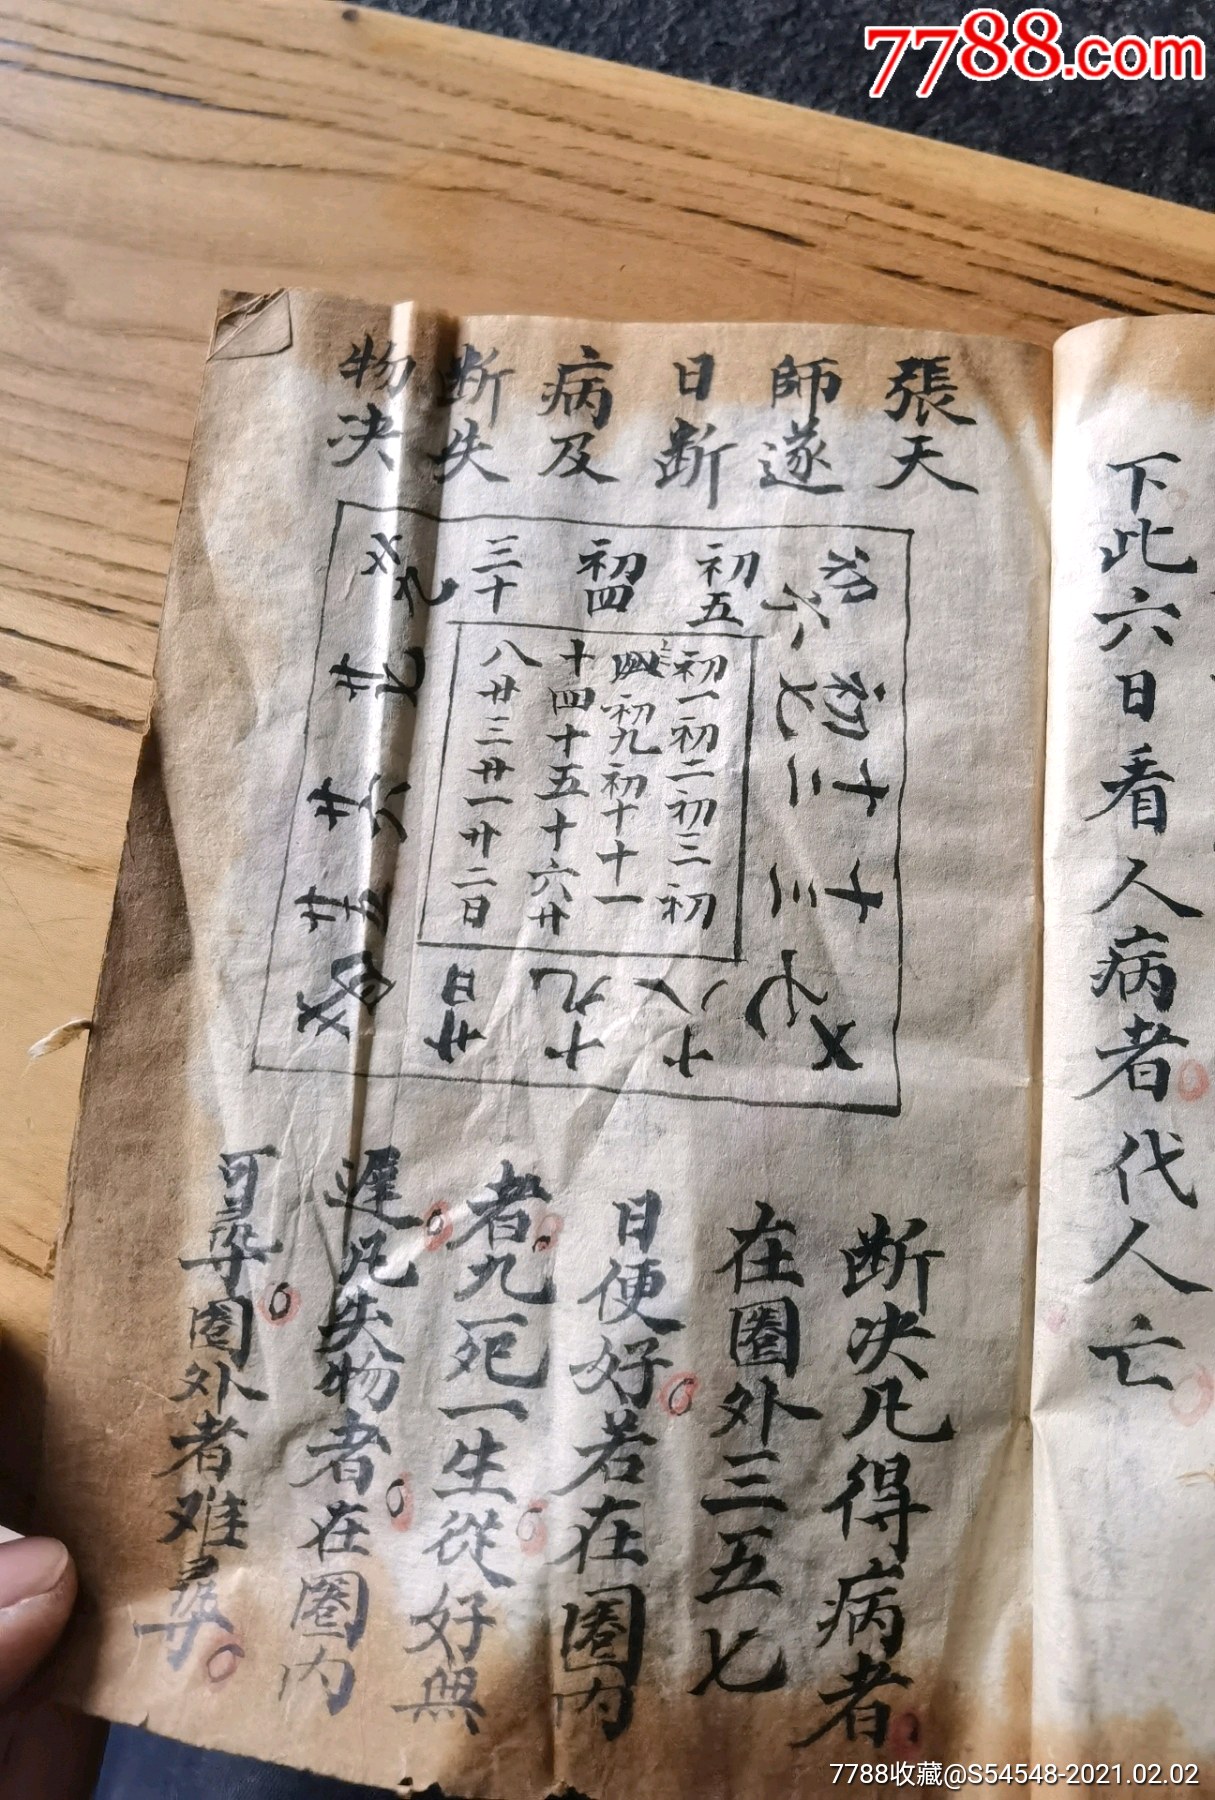 7788.com
下此六日看人病者代人亡
張天
師遂
日断
病及
断失
物决
初六
初五
初四
三十
初七
十二
十三
十八
十九
廿日
廿五
廿六
初一初二初三初
初九初十十一
十四十五十六廿
八廿三廿一廿二日
断决凡得病者
在圈外三五七
日便好若在圈内
者九死一生從好無
遲凡失物者在圈内
可尋圈外者难尋
7788收藏@S54548-2021.02.02